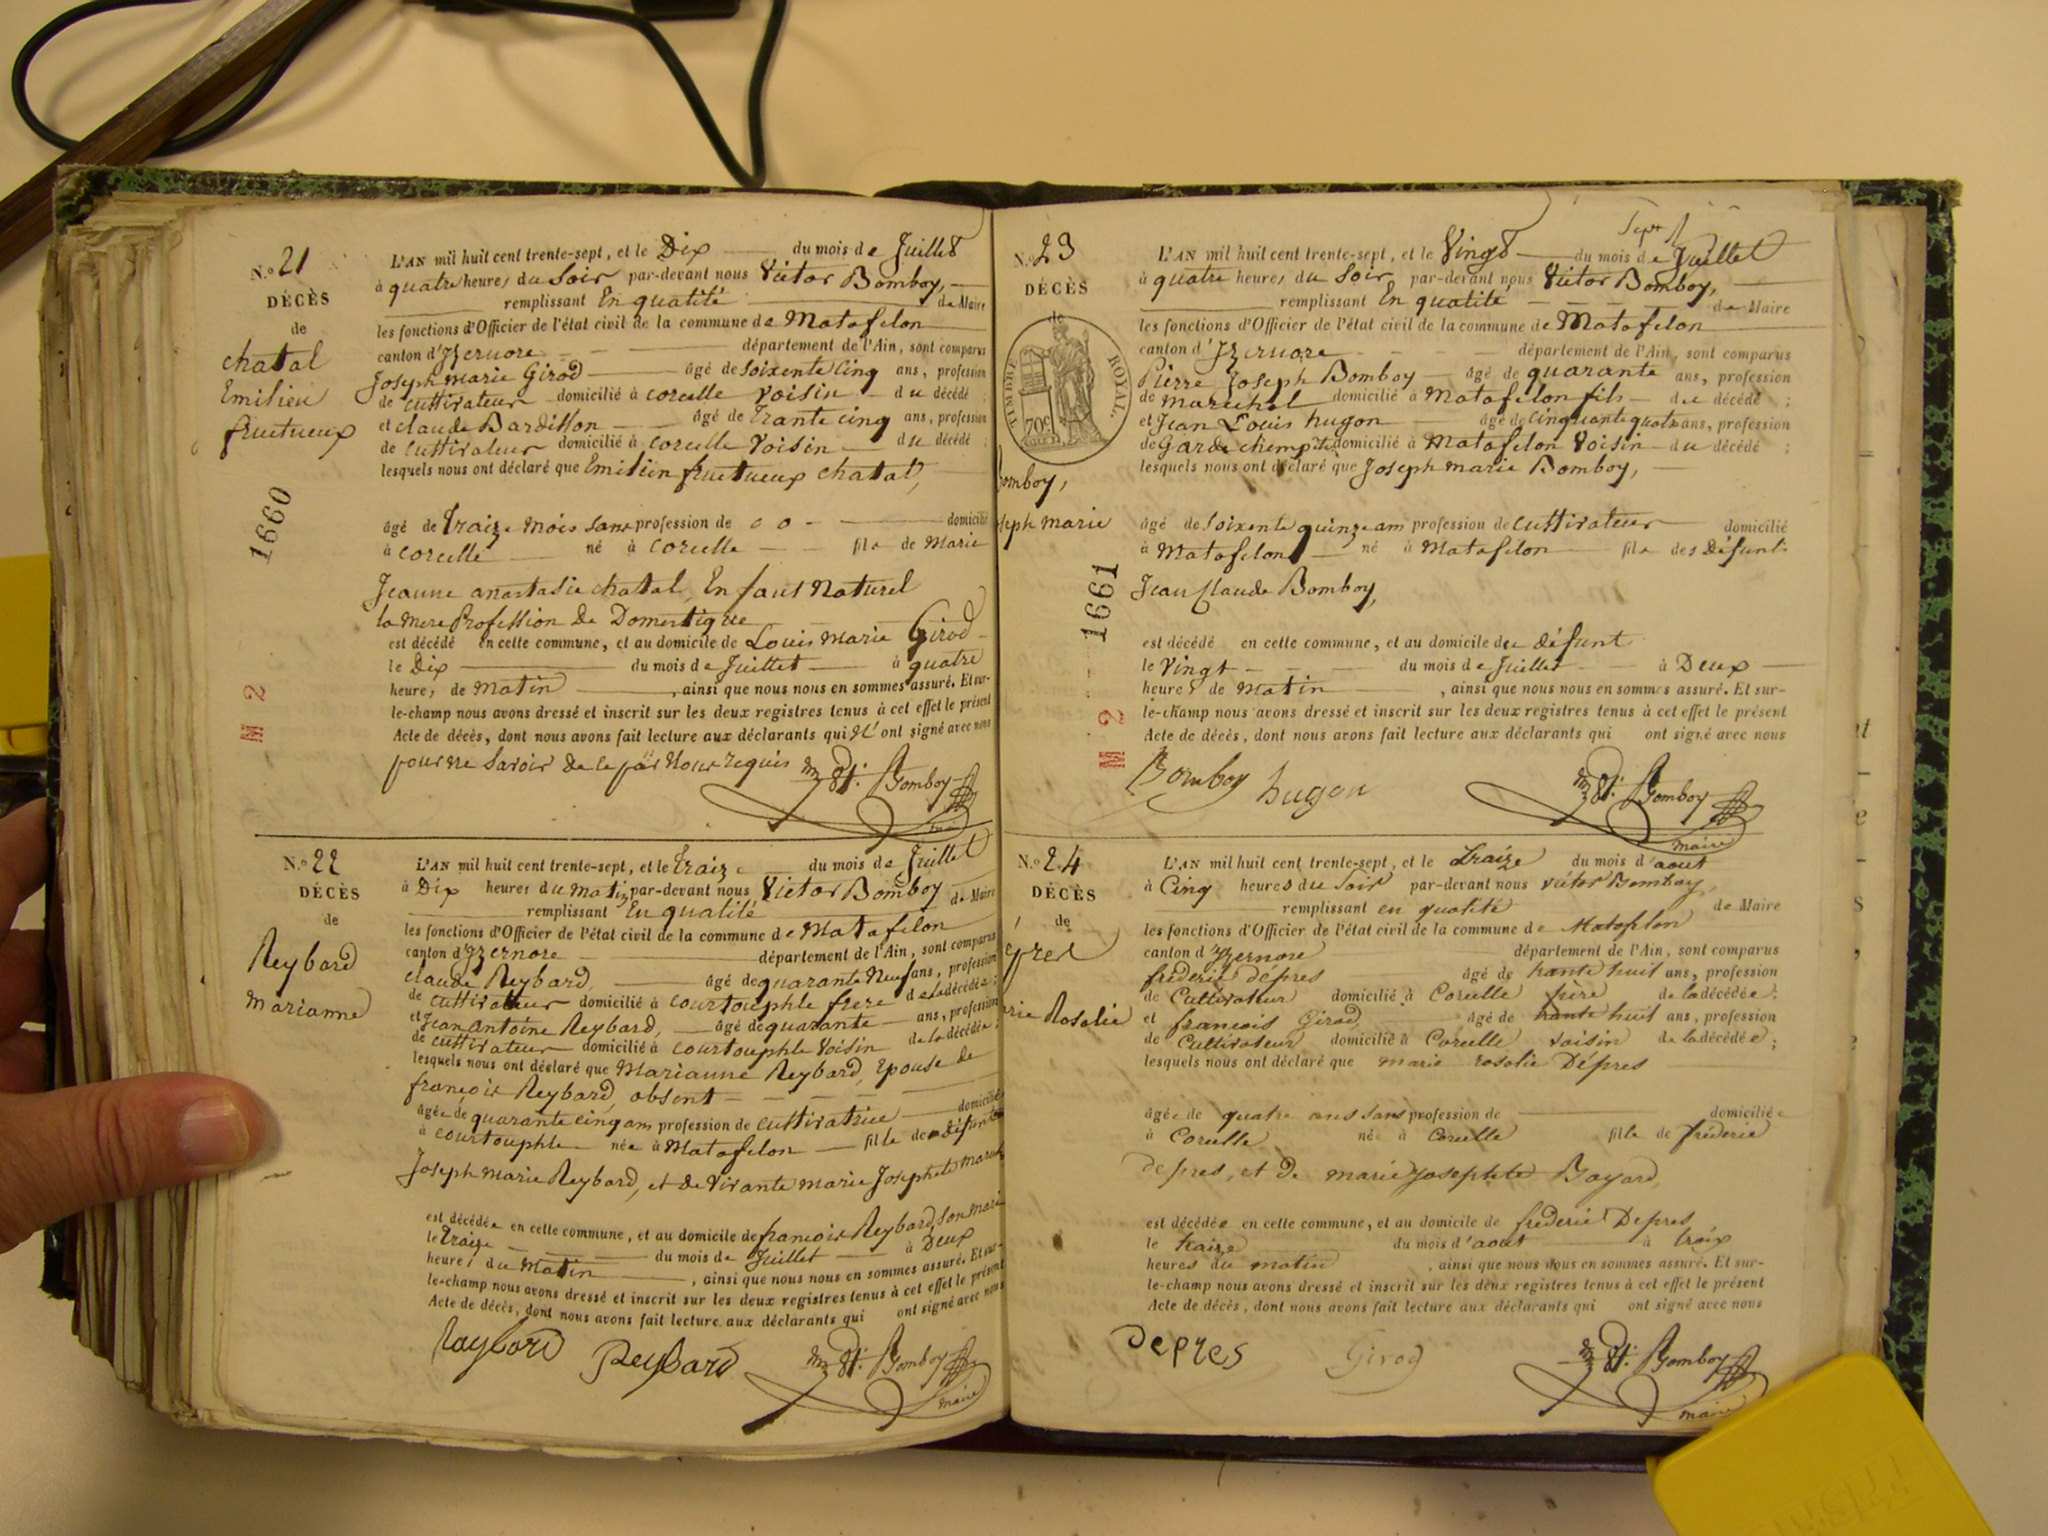 N.o 21
DÉCÈS
de
chatal
Emilien
fructueux
1660
M 2
L'AN mil huit cent trente-sept, et le Dix du mois de Juillet
à quatre heures du Soir par-devant nous Victor Bomboy,
remplissant En qualité de Maire
les fonctions d'Officier de l'état civil de la commune de Matafelon
canton d'Izernore département de l'Ain, sont comparus
Joseph marie Girod âgé de soixente cinq ans, profession
de cultivateur domicilié à corcelle voisin du décédé ;
et claude Bardillon âgé de trante cinq ans, profession
de cultivateur domicilié à corcelle Voisin du décédé ;
lesquels nous ont déclaré que Emilien fructueux chatal,
âgé de traize mois sans profession de domicilié
à corcelle né à corcelle fils de Marie
Jeanne anastasie chatal, Enfant Naturel
la mere Profession de Domestique
est décédé en cette commune, et au domicile de Louis marie Girod
le Dix du mois de Juillet à quatre
heures de matin, ainsi que nous nous en sommes assuré. Et sur-
le-champ nous avons dressé et inscrit sur les deux registres tenus à cet effet le présent
Acte de décès, dont nous avons fait lecture aux déclarants qui N' ont signé avec nous
pour ne Savoir de ce par Nous requis Bomboy
N.o 22
DÉCÈS
de
Reybard
Marianne
L'AN mil huit cent trente-sept, et le traize du mois de Juillet
à Dix heures du matin par-devant nous Victor Bomboy de Maire
remplissant En qualité
les fonctions d'Officier de l'état civil de la commune de Matafelon
canton d'Izernore département de l'Ain, sont comparus
claude Reybard, âgé de quarante Neuf ans, profession
de cultivateur domicilié à courtouphle frere de la décédée ;
et Jean antoine Reybard, âgé de quarante ans, profession
de cultivateur domicilié à courtouphle Voisin de la décédée ;
lesquels nous ont déclaré que Marianne Reybard, Epouse de
françois Reybard, absent
âgée de quarante cinq ans profession de cultivatrice domiciliée
à courtouphle née à Matafelon fille de défunts
Joseph marie Reybard, et de Vivante marie Josephete
est décédée en cette commune, et au domicile de françois Reybard, Son mari
le traize du mois de Juillet à Deux
heures du matin, ainsi que nous nous en sommes assuré. Et sur-
le-champ nous avons dressé et inscrit sur les deux registres tenus à cet effet le présent
Acte de décès, dont nous avons fait lecture aux déclarants qui ont signé avec nous
Raybard Reybard Bomboy
maire
N.o 23
DÉCÈS
de
TIMBRE ROYAL
70c
omboy,
seph marie
1661
M 2
L'AN mil huit cent trente-sept, et le Vingt du mois de Juillet
à quatre heures du Soir par-devant nous Victor Bomboy,
remplissant En qualité de Maire
les fonctions d'Officier de l'état civil de la commune de Matafelon
canton d'Izernore département de l'Ain, sont comparus
Pierre Joseph Bomboy âgé de quarante ans, profession
de marechal domicilié à Matafelon fils du décédé ;
et Jean Louis hugon âgé de cinquante quatre ans, profession
de Garde domicilié à Matafelon Voisin du décédé ;
lesquels nous ont déclaré que Joseph marie Bomboy,
âgé de soixente quinze ans profession de cultivateur domicilié
à Matafelon né à Matafelon fils des défunts
Jean Claude Bomboy,
est décédé en cette commune, et au domicile du défunt
le Vingt du mois de Juillet à Deux
heures de Matin, ainsi que nous nous en sommes assuré. Et sur-
le-champ nous avons dressé et inscrit sur les deux registres tenus à cet effet le présent
Acte de décès, dont nous avons fait lecture aux déclarants qui ont signé avec nous
Bomboy hugon Bomboy
maire
N.o 24
DÉCÈS
de
rie Rosalie
L'AN mil huit cent trente-sept, et le traize du mois d'aout
à Cinq heures du Soir par-devant nous victor Bomboy,
remplissant en qualité de Maire
les fonctions d'Officier de l'état civil de la commune de Matafelon
canton d'Izernore département de l'Ain, sont comparus
fréderic dépres âgé de trante huit ans, profession
de Cultivateur domicilié à Corcelle frère de la décédée ;
et françois Girod âgé de trante huit ans, profession
de Cultivateur domicilié à Corcelle voisin de la décédée ;
lesquels nous ont déclaré que marie rosalie Dépres
âgée de quatre ans sans profession de domiciliée
à Corcelle née à Corcelle fille de fréderic
depres, et de marie josephete Bayard,
est décédée en cette commune, et au domicile de fréderic Depres
le traize du mois d'aout à troix
heures du matin, ainsi que nous nous en sommes assuré. Et sur-
le-champ nous avons dressé et inscrit sur les deux registres tenus à cet effet le présent
Acte de décès, dont nous avons fait lecture aux déclarants qui ont signé avec nous
Depres Girod Bomboy
maire